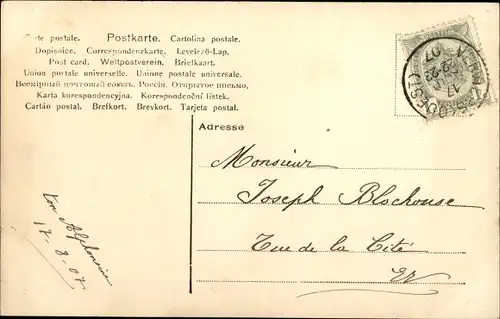 Carte postale. Postkarte. Cartolina postale.
Dopisnice. Correspondenzkarte. Levelező-Lap.
Post card. Weltpostverein. Briefkaart.
Union postale universelle. Unione postale universale.
Всемірный почтовый союзъ. Россія. Открытое письмо.
Karta korespondencyjna. Korespondenční lístek.
Cartão postal. Brefkort. Brevkort. Tarjeta postal.
Adresse
Monsieur
Joseph Blockouse
Rue de la Cité
17. 8. 07